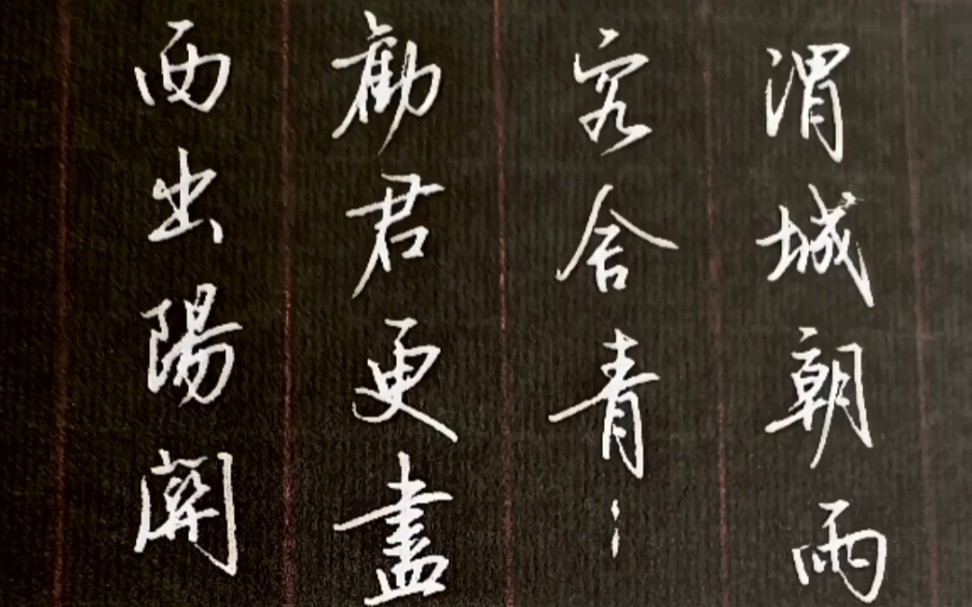 渭城朝雨
客舍青〻
勸君更盡
西出陽關